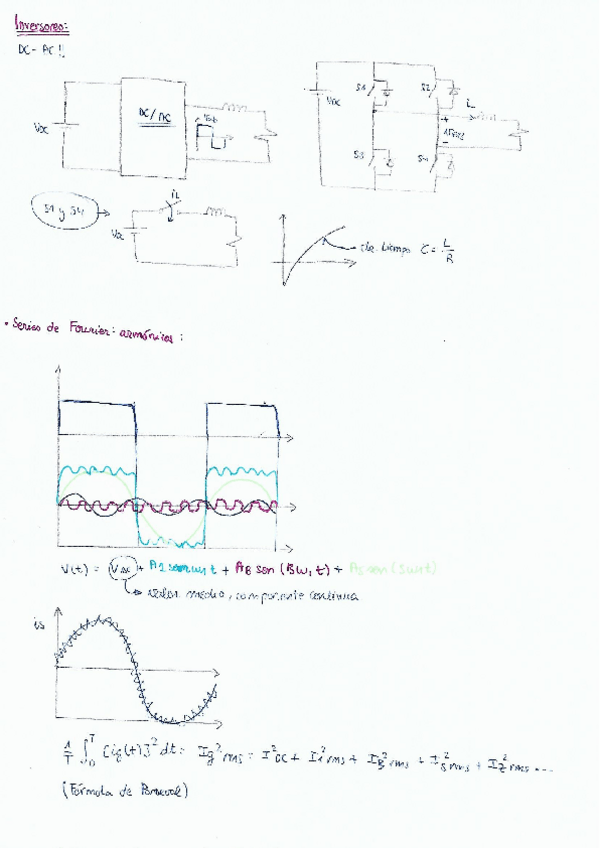 Inversores:
DC - AC !!
VDC
DC/AC
VDC
S1
S2
iL
+
-
S3
S4
S1 y S4
iL
VDC
cte tiempo τ = L/R
• Series de Fourier: armónicos:
V(t) = VDC + A1 sen ω1 t + A3 sen (3ω1 t) + A5 sen (5ω1 t)
valor medio, componente continua
is
1/T ∫0^T [ig(t)]² dt = Ig² rms = I²DC + I1² rms + I3² rms + I5² rms + I7² rms ...
(Fórmula de Parseval)